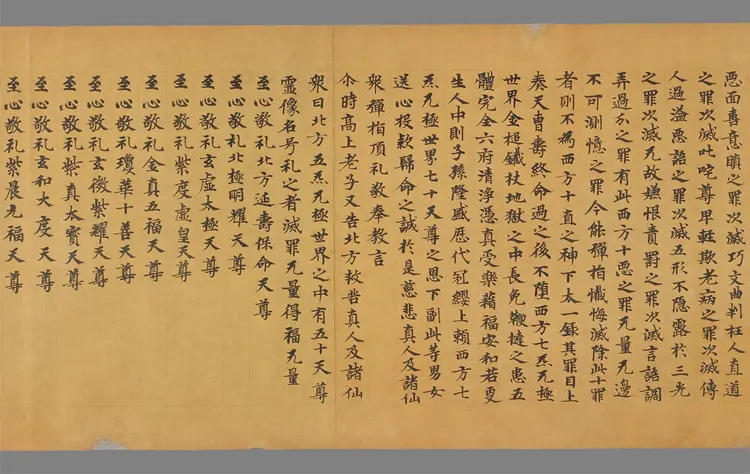 惡面善意瞋之罪次滅巧文曲判枉人直道
之罪次滅叱咤尊卑輕欺老病之罪次滅傳
人過溢惡誥之罪次滅五形不隱露於三光
之罪次滅无故嫌恨責罰之罪次滅言語調
弄過分之罪有此西方十惡之罪无量无邊
不可測憶之罪今能彈指懺悔滅除此十罪
者則不為西方十直之神下太一錄其罪目上
奏天曹壽終命過之後不墮西方七炁无極
世界金槌鐵杖地獄之中長免鞭撻之患五
體完全六府清淨憑真受樂藉福安和若更
生人中則子孫隆盛歷代冠纓上賴西方七
炁无極世界七十天尊之恩下副此等男女
送心投款歸命之誠於是慈悲真人及諸仙
衆彈指頂礼敬奉教言
尒時高上老子又告北方救苦真人及諸仙
衆曰北方五炁无極世界之中有五十天尊
靈像名号礼之者滅罪无量得福无量
至心敬礼北方延壽保命天尊
至心敬礼北極明耀天尊
至心敬礼玄虛太極天尊
至心敬礼紫度虛皇天尊
至心敬礼金真五福天尊
至心敬礼瓊華十善天尊
至心敬礼玄微紫耀天尊
至心敬礼紫真太寶天尊
至心敬礼玄和大度天尊
至心敬礼紫晨九福天尊